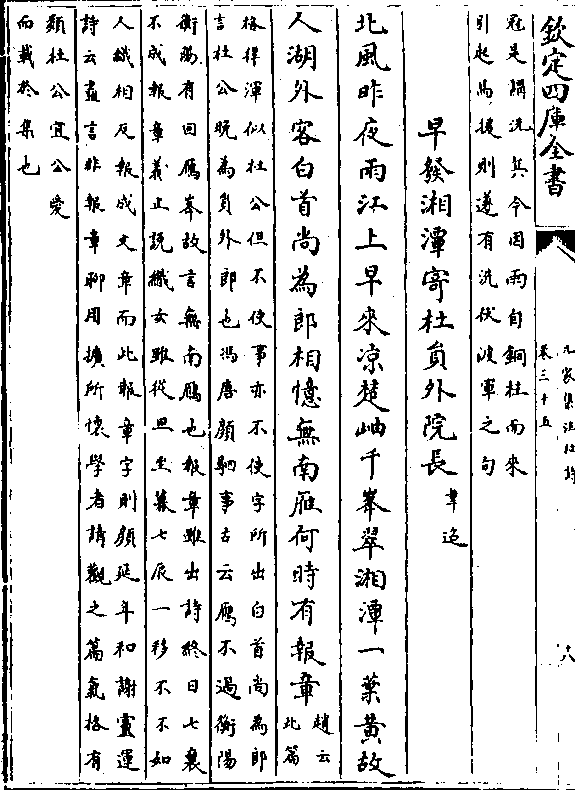 欽定四庫全書
九家集注杜詩
卷三十五
十八
冠是鵑洗兵今因雨自銅柱而來
引起馬援則遂有洗伏波軍之句
早發湘潭寄杜員外院長 韋迢
北風昨夜雨江上早來凉楚岫千峯翠湘潭一葉黄故
人湖外客白首尚為郎相憶無南雁何時有報章
趙云
此篇
格律渾似杜公但不使事亦不使字所出白首尚為郎
言杜公晚為員外郎也馮唐顔駟事古云鴈不過衡陽
衡陽有回鴈峯故言無南鴈也報章雖出詩終日七襄
不成報章義止説織女雖從旦至暮七辰一移不不如
人織相反報成文章而此報章字則顔延年和謝靈運
詩云盡言非報章聊用擴所懷學者請觀之篇氣格有
類杜公宜公愛
而載於集也